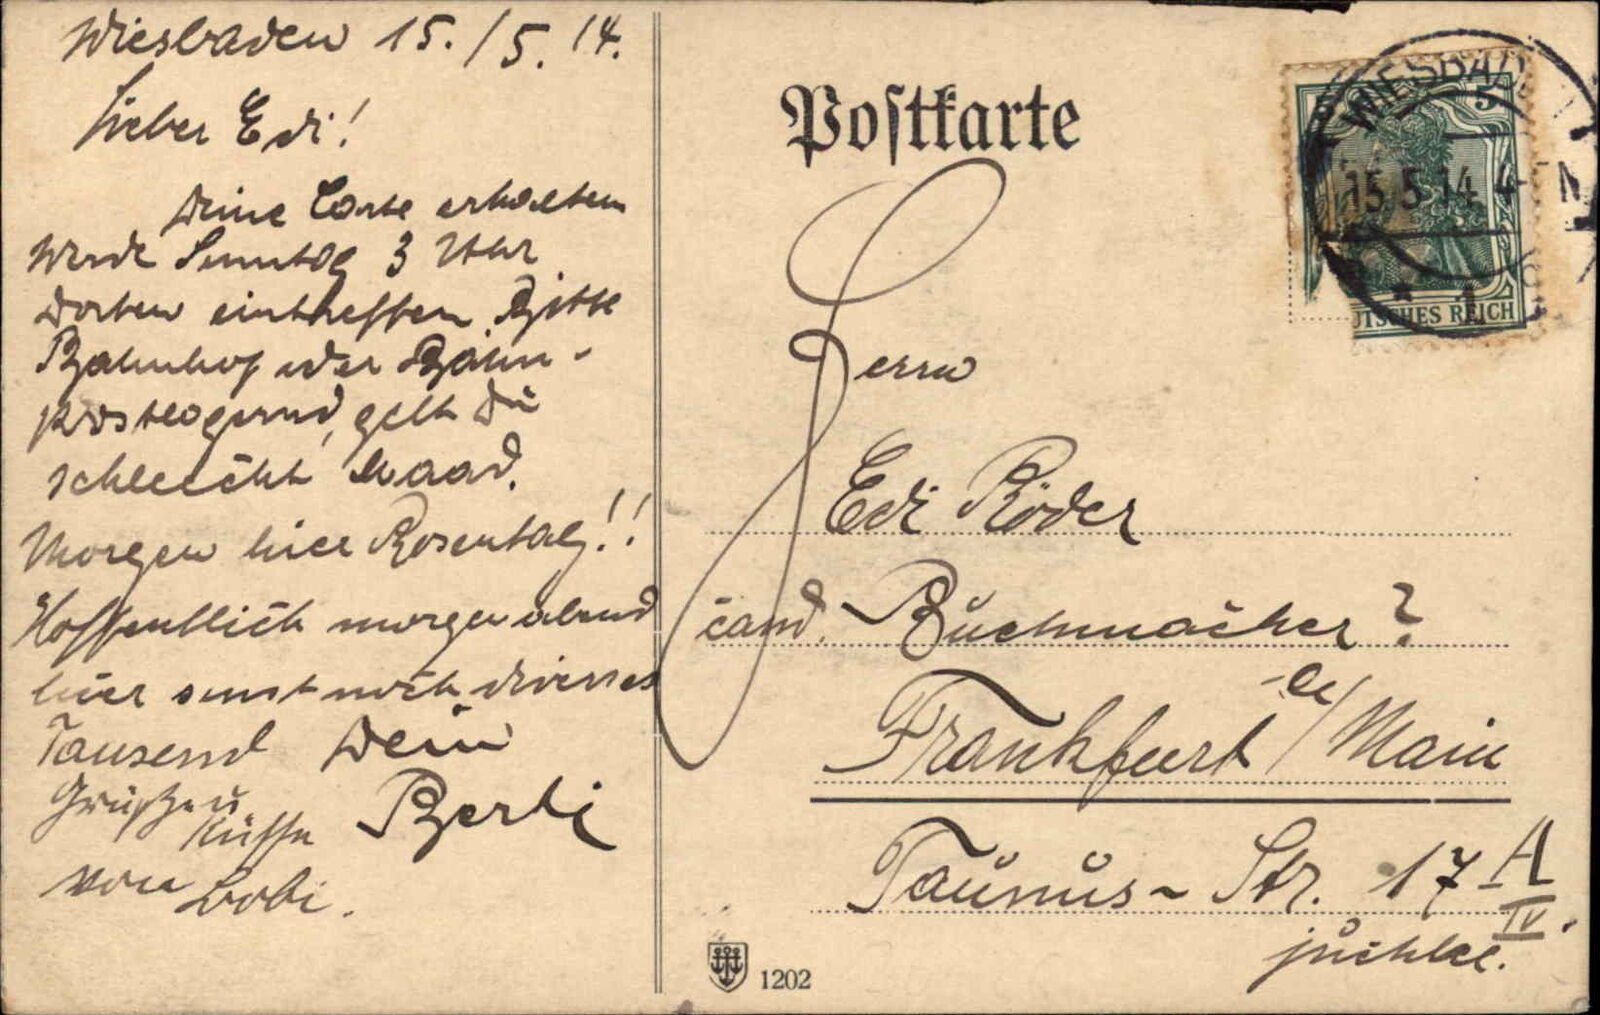 Wiesbaden 15./5. 14.
Lieber Edi!
Deine Carte erhalten
werde Sonntag 3 Uhr
dorten eintreffen Bitte
Bahnhof oder Bahn-
postlagernd, gelt Du
schleecht
Morgen hier Rosentag!!
Hoffentlich morgen abend
hier sonst noch diverses
Tausend Dein
Grüße u
Küsse Berti
von Lobi.
Postkarte
WIESBADEN
15 5 14 4- N
* 1
5
DEUTSCHES REICH
Herrn
Edi Röder
cand. Buchmacher?
Frankfurt /Main
Taunus-Str. 17 A
IV.
1202